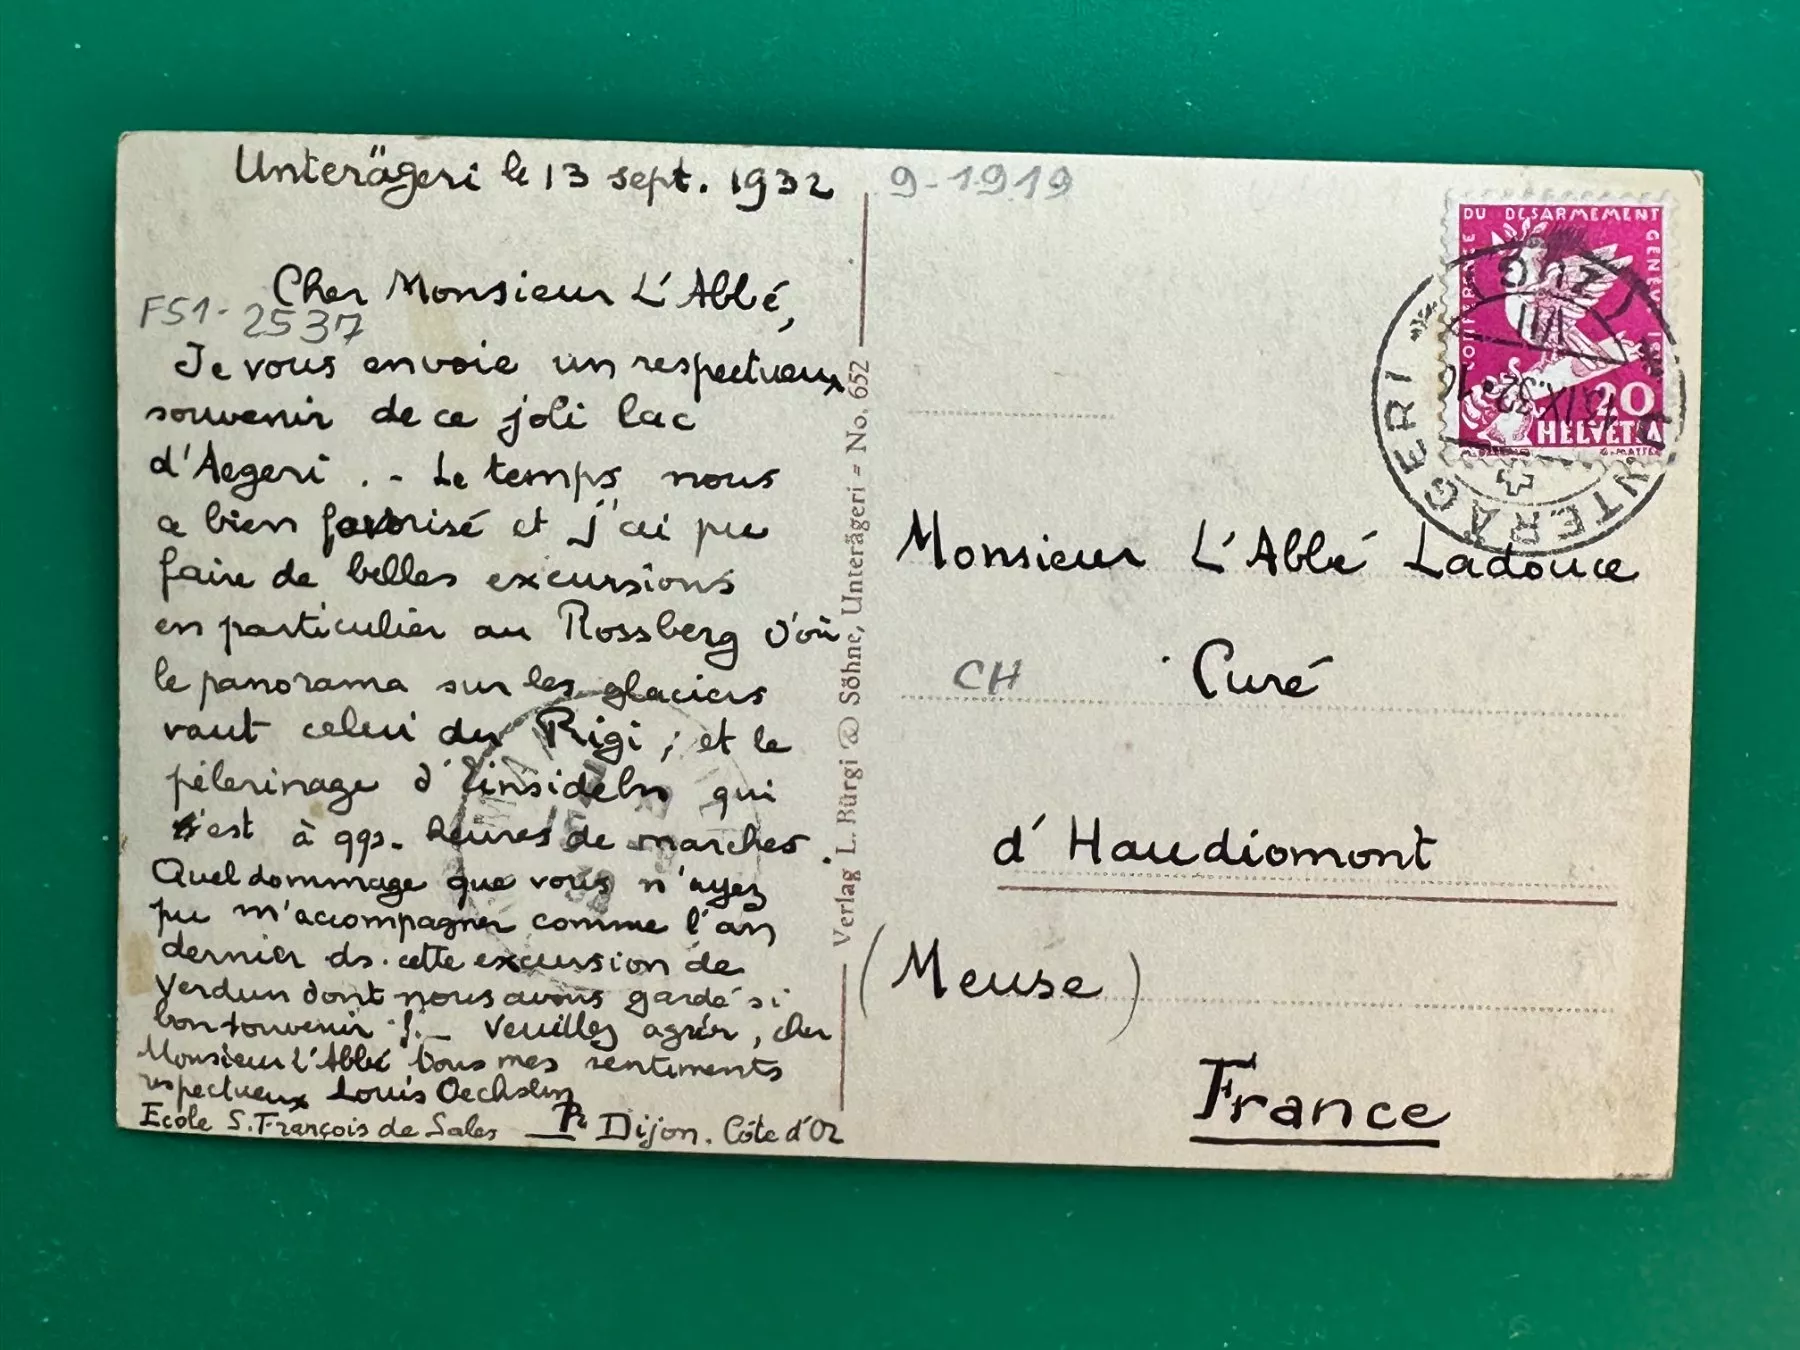 Unterägeri le 13 sept. 1932
Cher Monsieur L'Abbé,
FS1-2537
Je vous envoie un respectueux
souvenir de ce joli lac
d'Aegeri . - Le temps nous
a bien favorisé et j'ai pu
faire de belles excursions
en particulier au Rossberg d'où
le panorama sur les glaciers
vaut celui du Rigi ; et le
pélerinage d'Einsideln qui
n'est à qqs. heures de marches.
Quel dommage que vous n'ayez
pu m'accompagner comme l'an
dernier ds. cette excursion de
Verdun dont nous avons gardé si
bon souvenir !. — Veuillez agréer, cher
Monsieur L'Abbé tous mes sentiments
respectueux Louis Oechslin
Ecole S. François de Sales Dijon. Côte d'Or
Verlag L. Bürgi & Söhne, Unterägeri - No. 652
9-1919
CONFERENCE DU DESARMEMENT GENEVE
20
HELVETIA
UNTERÄGERI
ZUG
VII
13.IX.32
Monsieur L'Abbé Ladouce
CH
Curé
d'Haudiomont
(Meuse)
France